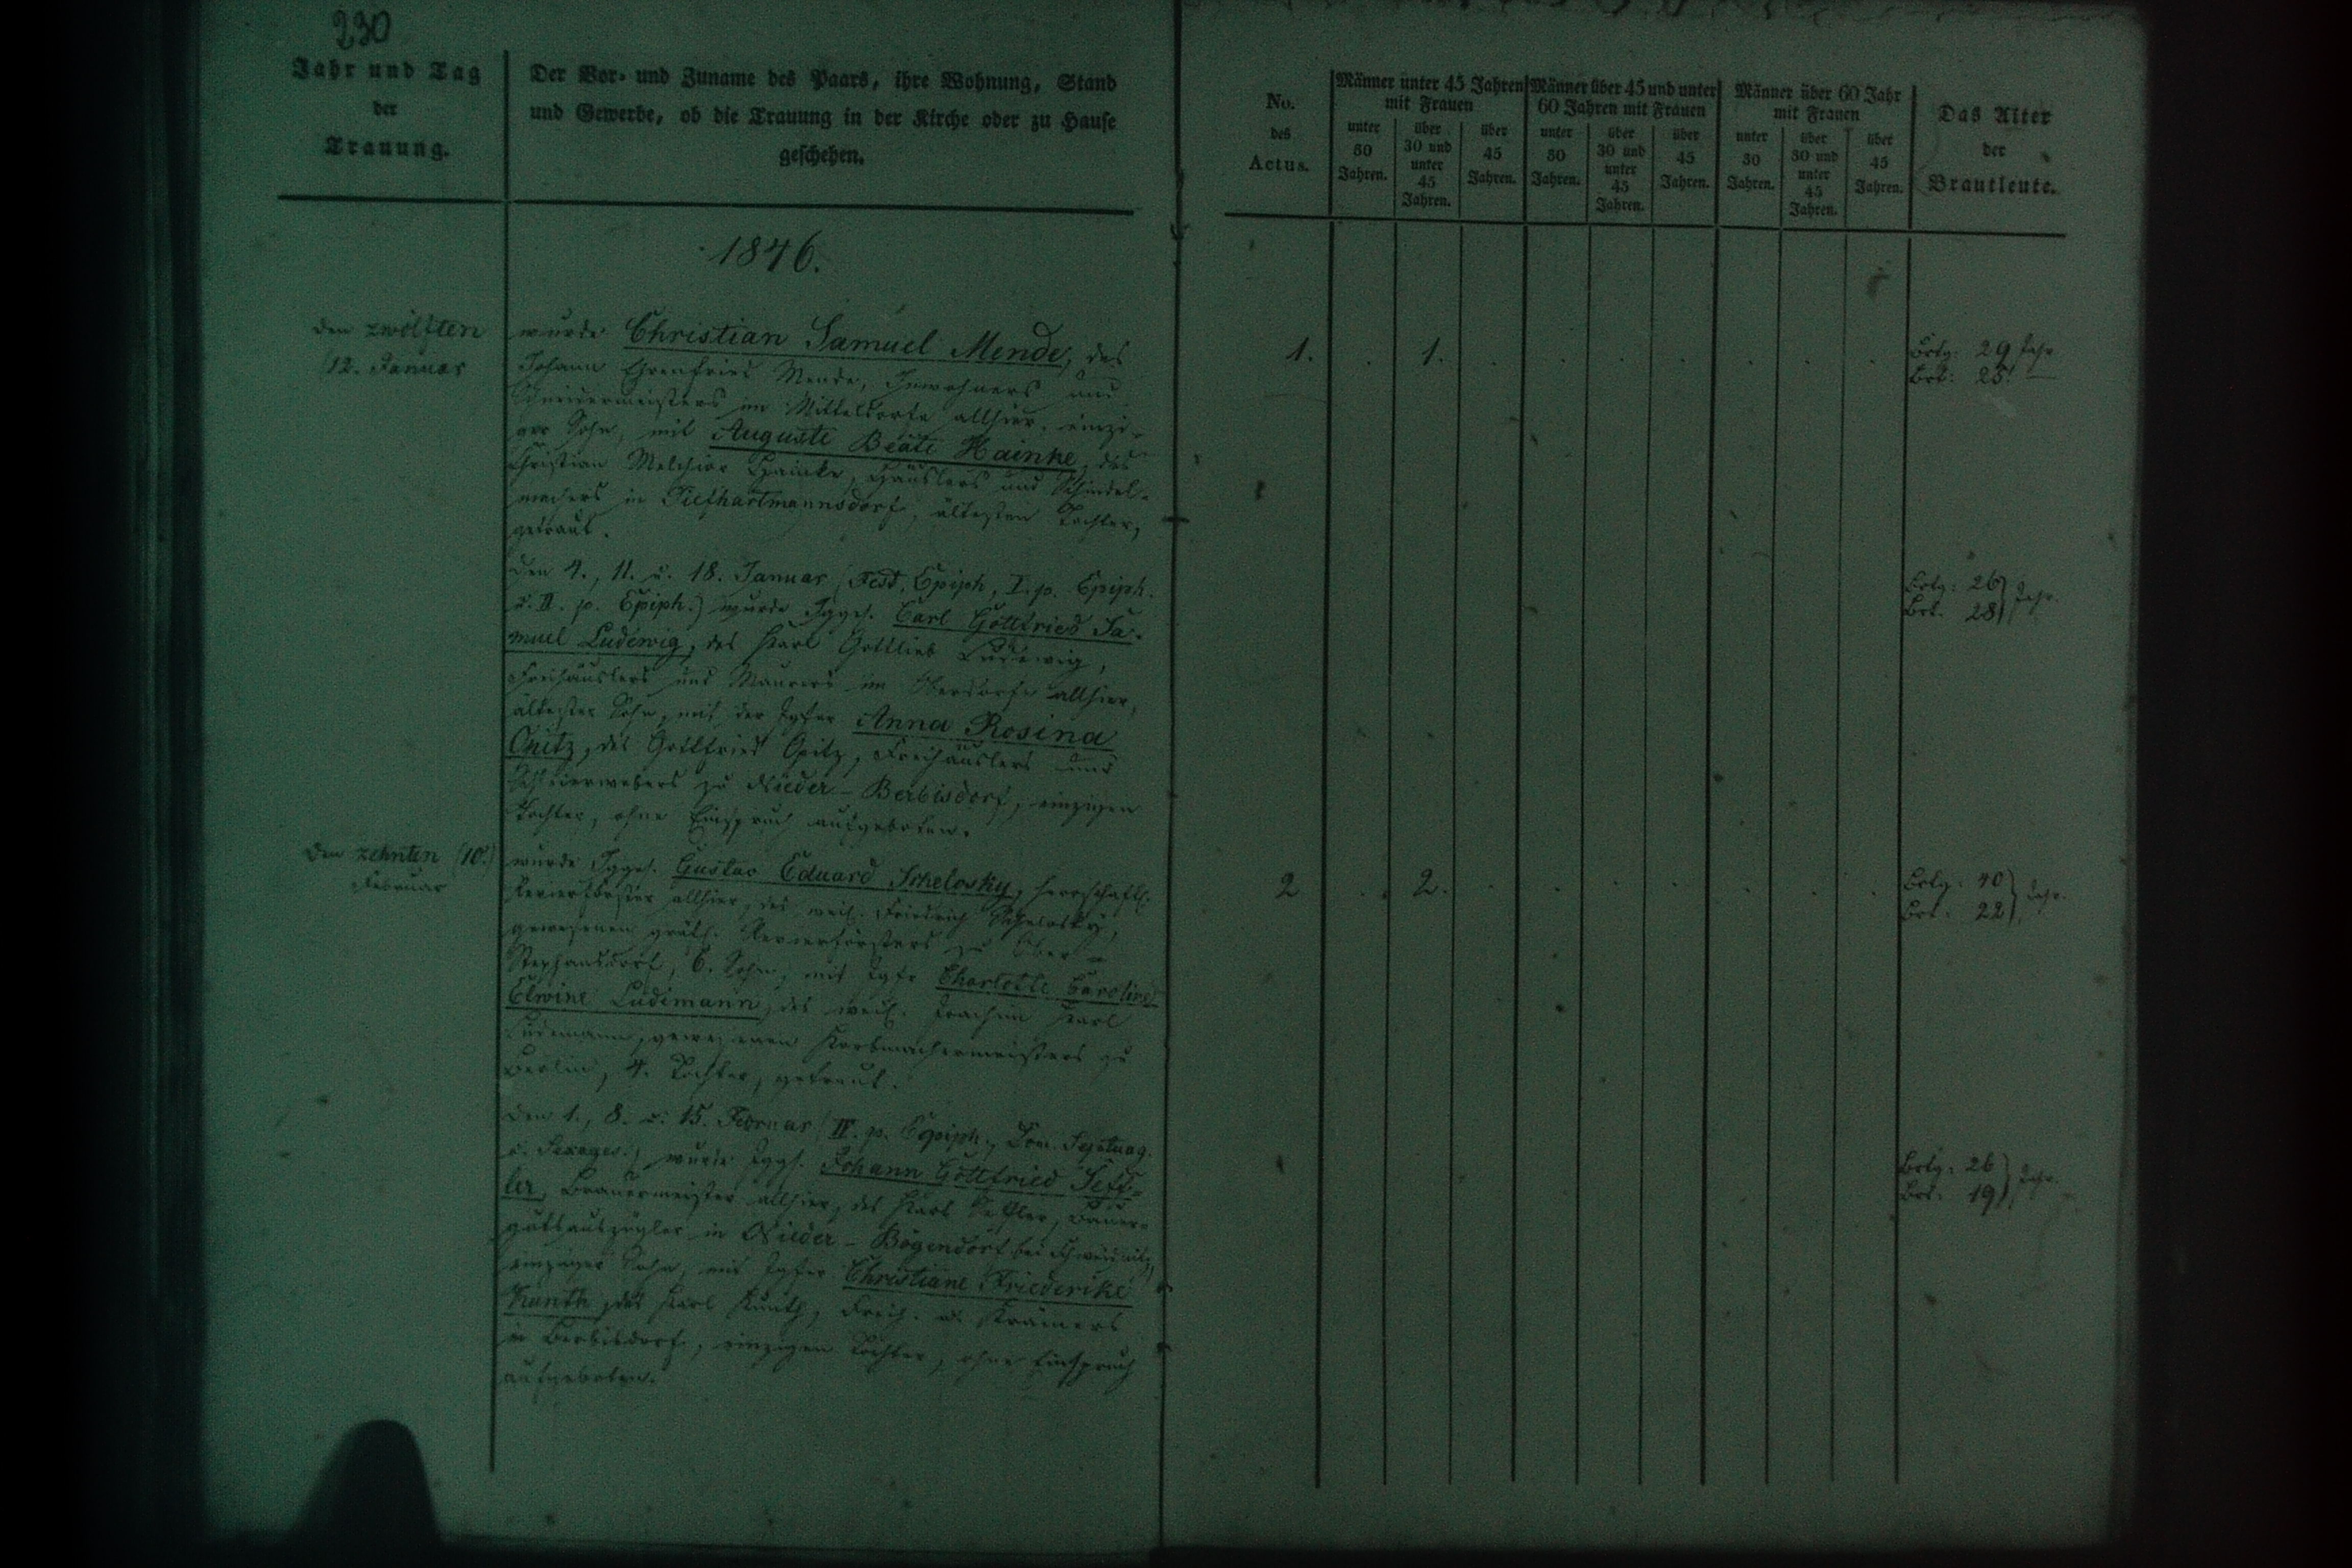 230
Jahr und Tag
der
Trauung.
Der Vor- und Zuname des Paars, ihre Wohnung, Stand
und Gewerbe, ob die Trauung in der Kirche oder zu Hause
geschehen.
No.
des
Actus.
Männer unter 45 Jahren
mit Frauen
unter
30
Jahren.
über
30 und
unter
45
Jahren.
über
45
Jahren.
Männer über 45 und unter
60 Jahren mit Frauen
unter
30
Jahren.
über
30 und
unter
45
Jahren.
über
45
Jahren.
Männer über 60 Jahr
mit Frauen
unter
30
Jahren.
über
30 und
unter
45
Jahren.
über
45
Jahren.
Das Alter
der
Brautleute.
1846.
den zwölften
(12. Januar
wurde Christian Samuel Mende, des
Johann Ehrenfried Mende, Inwohners und
Schneidermeisters im Mitteldorfe allhier, einzi-
ger Sohn, mit Auguste Beate Hainke, des
Christian Melchior Hainke, Häuslers und Schindel-
machers in Tiefhartmannsdorf, ältesten Tochter,
getraut.
1. 1.
Brtg: 29 Jahr
Brt: 25. —
den 4., 11. u. 18. Januar (Fest. Epiph, I. p. Epiph.
u. II. p. Epiph.) wurde Jgges. Carl Gottfried Sa-
muel Ludewig, des Karl Gottlieb Ludewig,
Freihäuslers und Maurers im Oberdorfe allhier,
ältester Sohn, mit der Jgfer Anna Rosina
Opitz, des Gottfried Opitz, Freihäuslers und
zu Nieder-Berbisdorf, einzigen
Tochter, ohne Einspruch aufgeboten.
Brtg: 26
Brt. 28 Jahr.
den zehnten (10.)
Februar
wurde Jgges. Gustav Eduard Schelosky, herrschaftl.
Revierförster allhier, des weil. Friedrich Schelosky,
gewesenen gräfl. Revierförsters zu Ober-
Stephansdorf, 6. Sohn, mit Jgfr Charlotte Caroline
Elwine Lüdemann, des weil. Joachim Karl
Lüdemann, gewesenen Korbmachermeisters zu
Berlin, 4. Tochter, getraut.
2 2.
Brtg: 40
Brt: 22 Jahr.
den 1., 8. u. 15. Februar (IV. p. Epiph., Dom. Septuag.
u. Sexages.) wurde Jggs. Johann Gottfried Seff-
ler, Brauermeister allhier, des Karl Seffler, Bauer-
gutsauszügler in Nieder-Bögendorf bei Schweidnitz,
einziger Sohn, mit Jgfer Christiane Friederike
Kunth, des Karl Kunth, Freih. u. Krämers
in Berbisdorf, einzigen Tochter, ohne Einspruch
aufgeboten.
Brtg: 26
Brt: 19 Jahr.